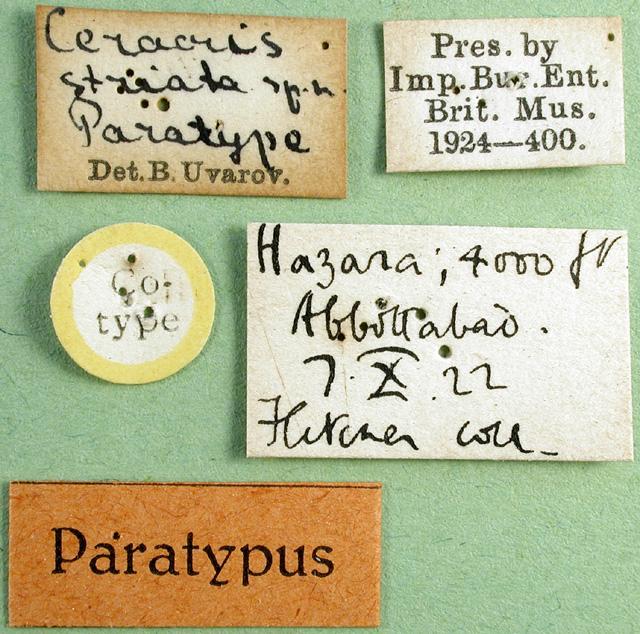 Ceracris
striata sp.n.
Paratype
Det. B. Uvarov.
Pres. by
Imp. Bur. Ent.
Brit. Mus.
1924—400.
Co-
type
Hazara; 4000 ft
Abbottabad.
7.X.22
Fletcher coll_
Paratypus